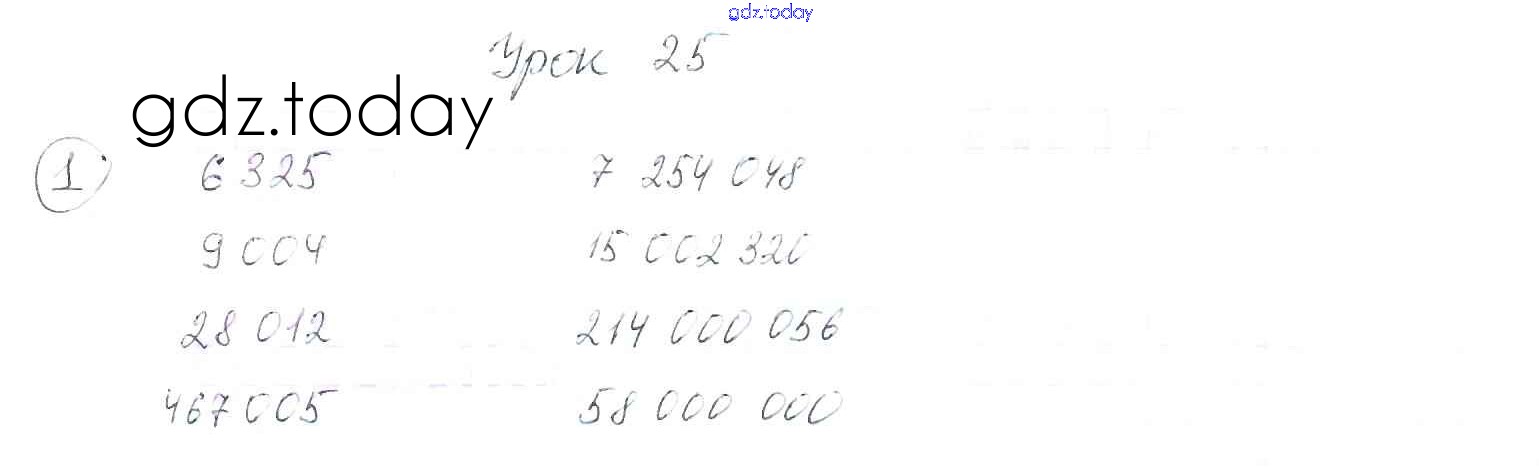 gdz.today
Урок 25
gdz.today
1 6 325 7 254 048
9 004 15 002 320
28 012 214 000 056
467 005 58 000 000